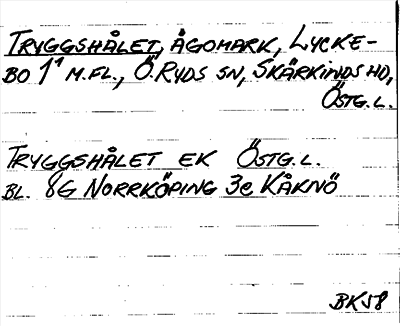 TRYGGSHÅLET, ÄGOMARK, LYCKE-
BO 1¹ M.FL., Ö. RYDS SN, SKÄRKINDS HD,
ÖSTG. L.
TRYGGSHÅLET EK ÖSTG. L.
BL. 8G NORRKÖPING 3e KÅKNÖ
BK58